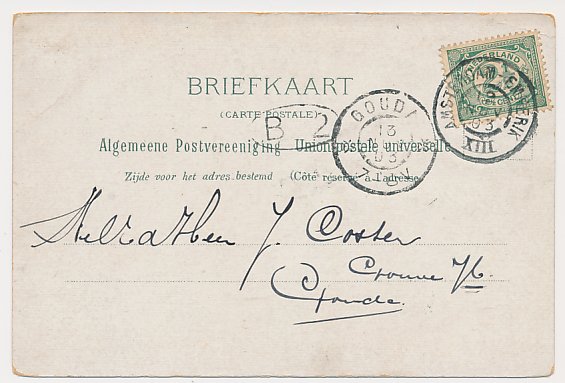 NEDERLAND
AMSTERDAM-EMMERIK
XIII
BRIEFKAART
(CARTE POSTALE)
GOUDA
13
03
B 2
Algemeene Postvereeniging Union postale universelle
Zijde voor het adres bestemd (Côté réservé à l'adresse)
J. Coster
Gouda